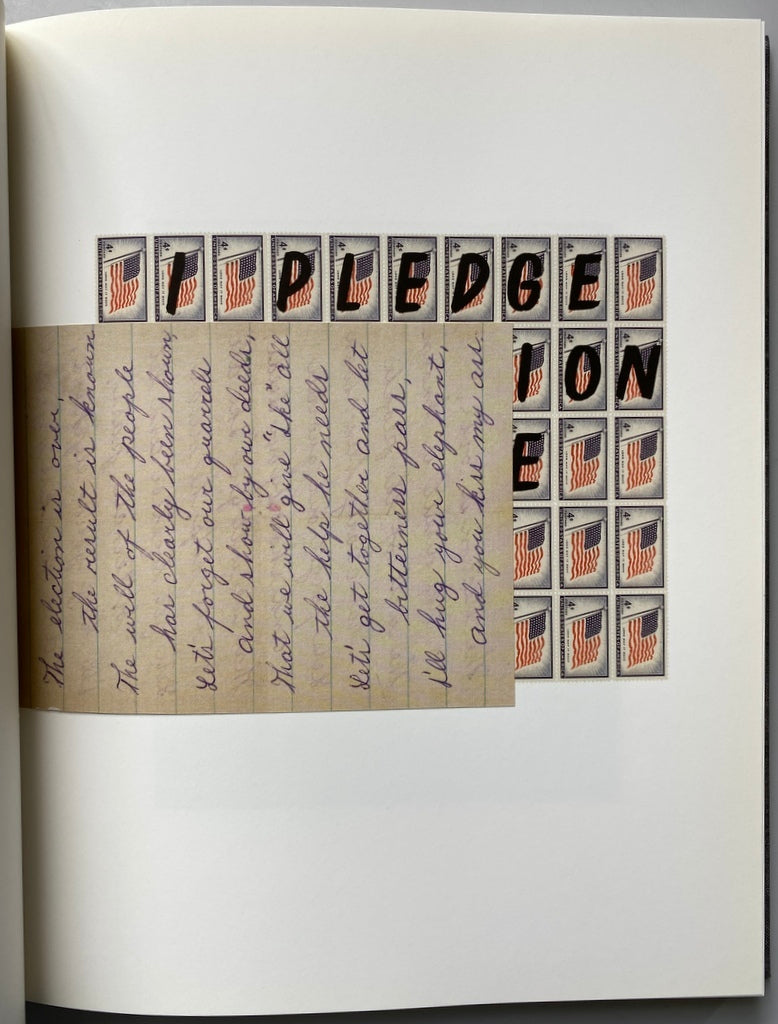 I PLEDGE
ION
E
The election is over,
the result is known
The will of the people
has clearly been shown,
Let's forget our quarrels
and show by our deeds,
That we will give "Ike" all
the help he needs
Let's get together and let
bitterness pass,
I'll hug your elephant,
and you kiss my ass.